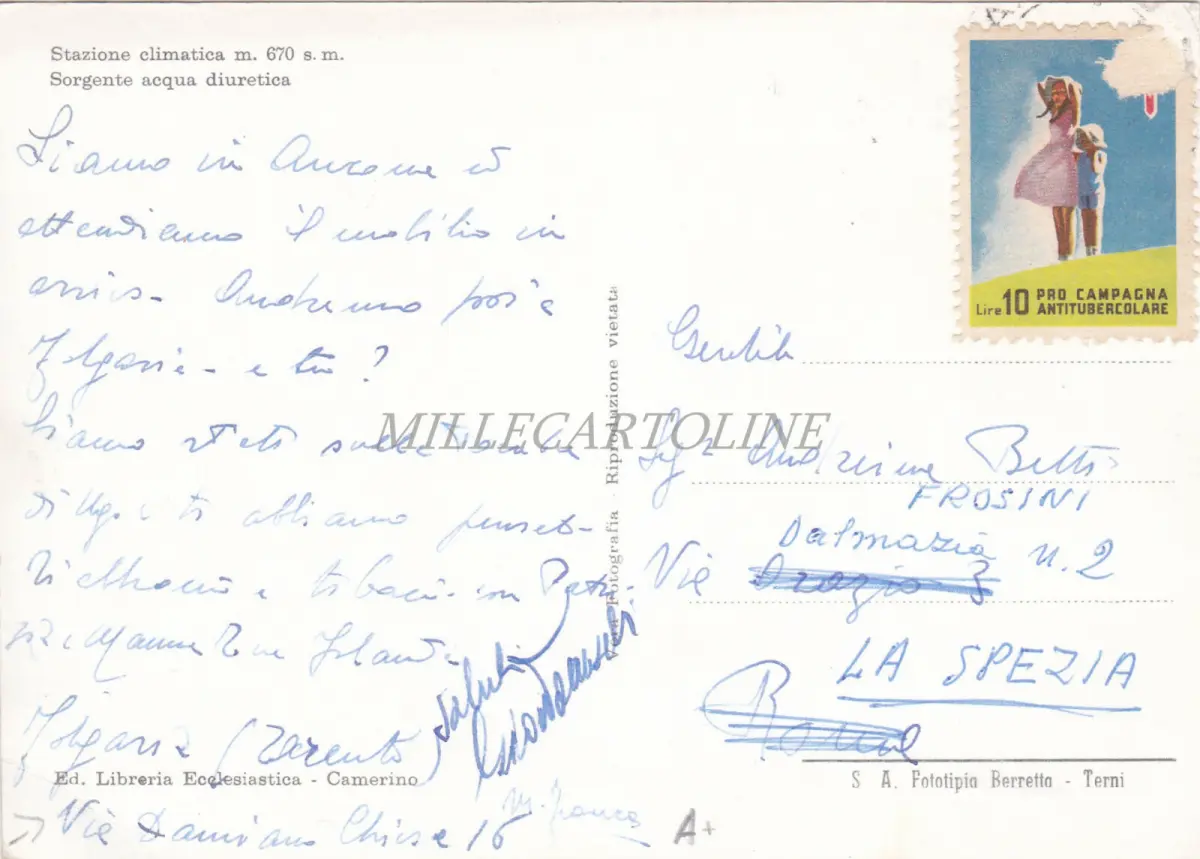 Stazione climatica m. 670 s. m.
Sorgente acqua diuretica
Siamo in Ancona ed
attendiamo il mobilio in
arrivo - Andremo poi a
Folgaria - e tu?
Siamo stati sulla
di Ugo e ti abbiamo pensat-
Ti e ti baci con Patri-
zi e Mamma
Folgaria (Trento
Saluti
Ed. Libreria Ecclesiastica - Camerino
Via Damiano Chiesa 16
A+
Vera Fotografia - Riproduzione vietata
MILLECARTOLINE
Lire 10 PRO CAMPAGNA
ANTITUBERCOLARE
Gentile
Sig.ra Andreina Betti
FROSINI
Dalmazia n. 2
Via Orazio 3
LA SPEZIA
Roma
S. A. Fototipia Berretta - Terni